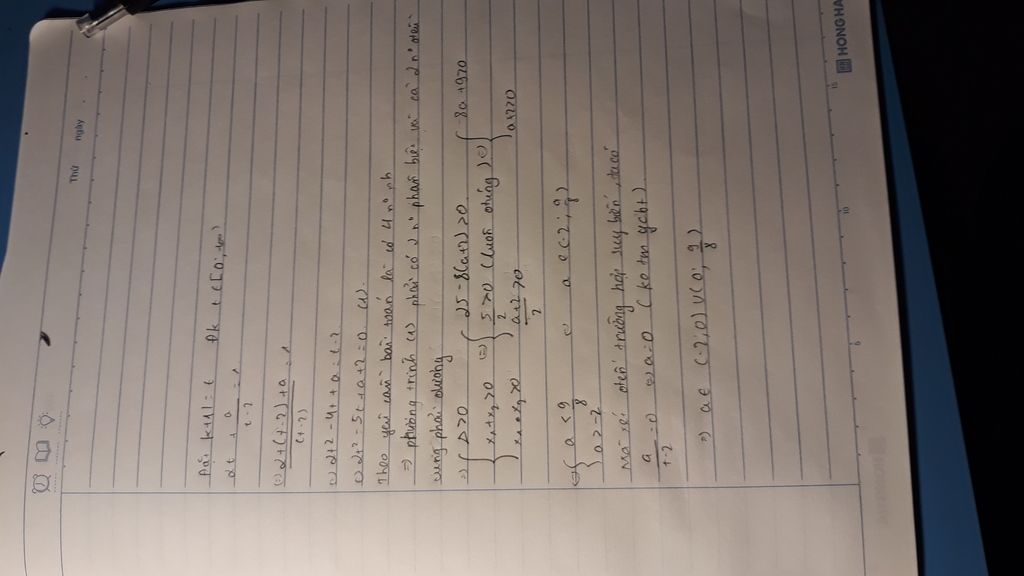 Thứ
ngày
Đặt |x+1| = t Đk t ∈ [0; +∞)
2t + a/(t-2) = 1
(=) 2t(t-2)+a / (t-2) = 1
(=) 2t2 - 4t + a = t-2
(=) 2t2 - 5t + a+2 = 0 (1).
Theo yêu cầu bài toán là có 4 no
=> phương trình (1) phải có 2 no phân biệt và cả 2 no đều
cùng phải dương
=> { Δ > 0 (=) { 25 - 8(a+2) > 0
x1 + x2 > 0 5/2 > 0 (luôn đúng) (=) { -8a + 9 > 0
x1 . x2 > 0 a+2/2 > 0 a+2 > 0
(=) { a < 9/8 (=) a ∈ (-2; 9/8)
a > -2
trường hợp suy biến, ta có
a/(t-2) = 0 (=) a = 0 (ko t/m ycbt)
=> a ∈ (-2; 0) ∪ (0; 9/8)
HONG HA